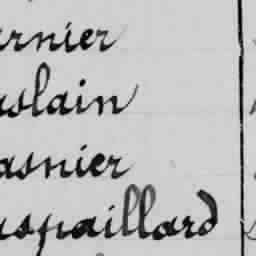 rnier
slain
asnier
uspaillard